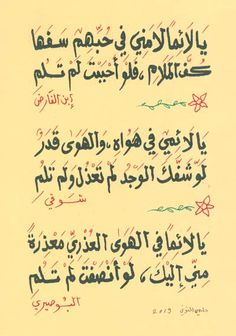 يا لائمًا لامني في حبهم سفها
كف الملام، فلو أحببت لم تلم
إبن الفارض
يا لائمي في هواه، والهوى قدر
لو شفك الوجد لم تعذل ولم تلم
شوقي
يا لائما في الهوى العذري معذرة
مني إليك، لو أنصفت لم تلم
البوصيري
2019